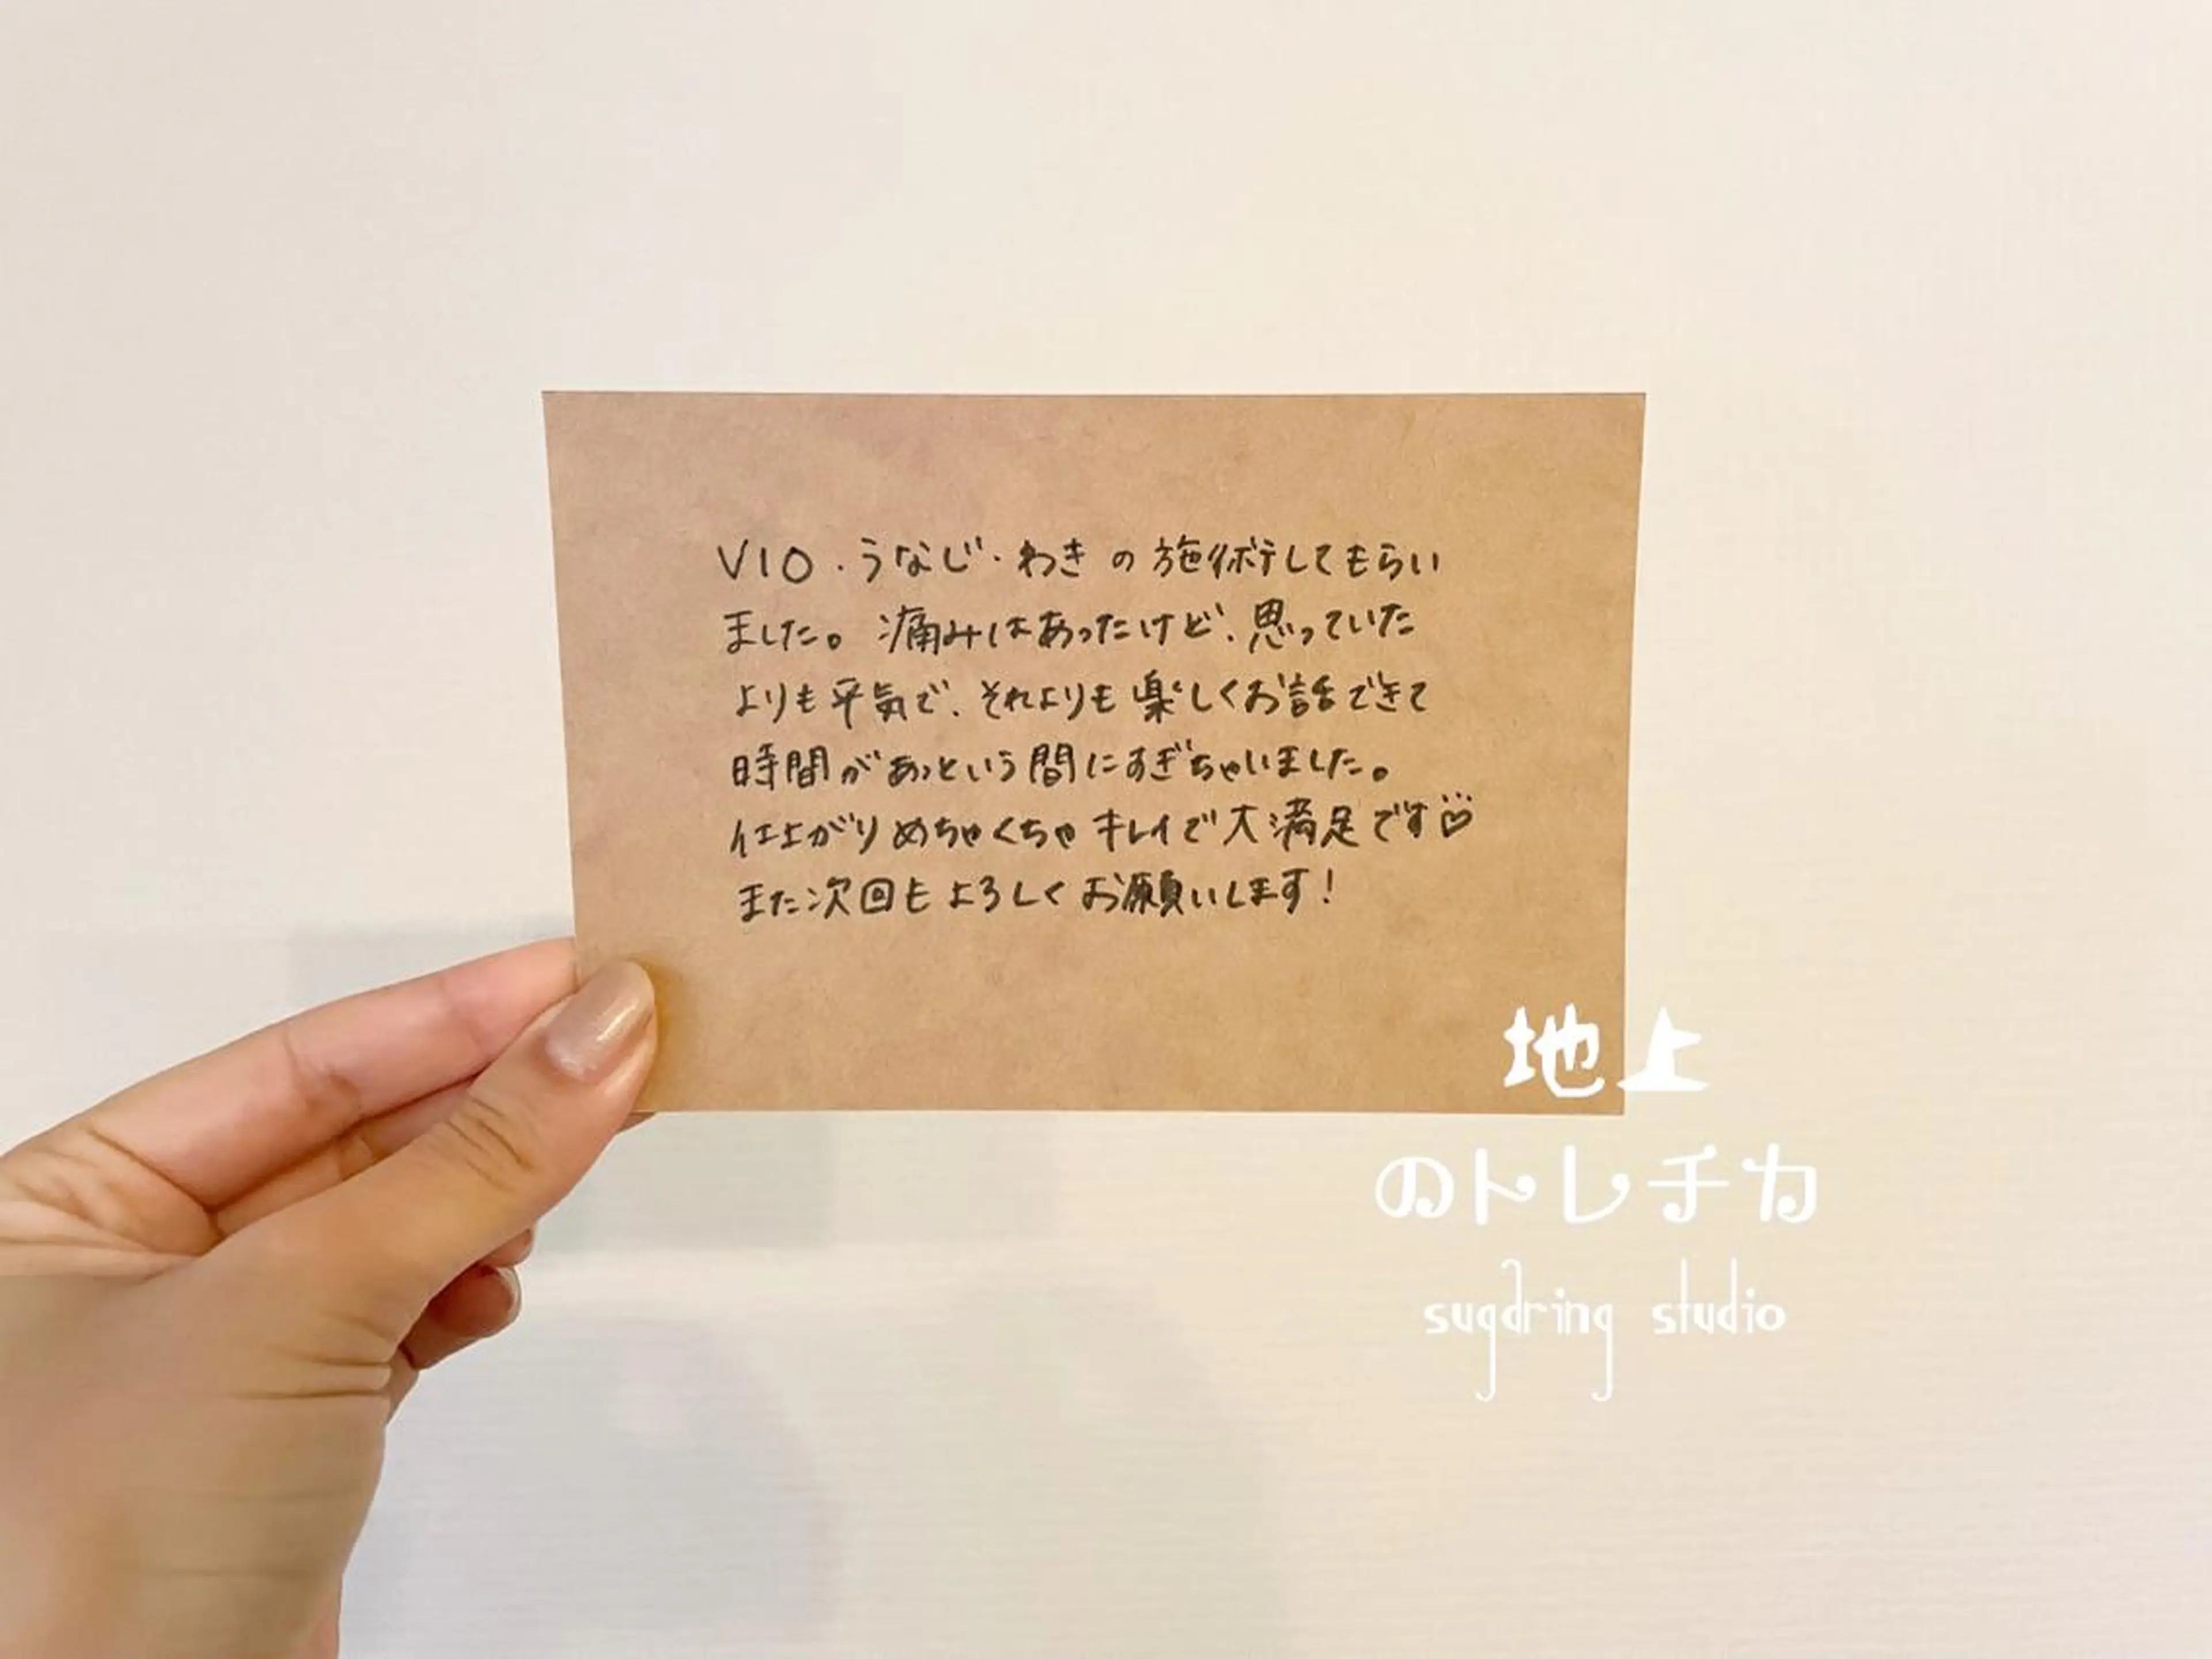 VIO・うなじ・わき の施術してもらい
ました。痛みはあったけど、思っていた
よりも平気で、それよりも楽しくお話できて
時間があっという間にすぎちゃいました。
仕上がりめちゃくちゃキレイで大満足です♡
また次回もよろしくお願いします！
地上
のトレチカ
sugaring studio